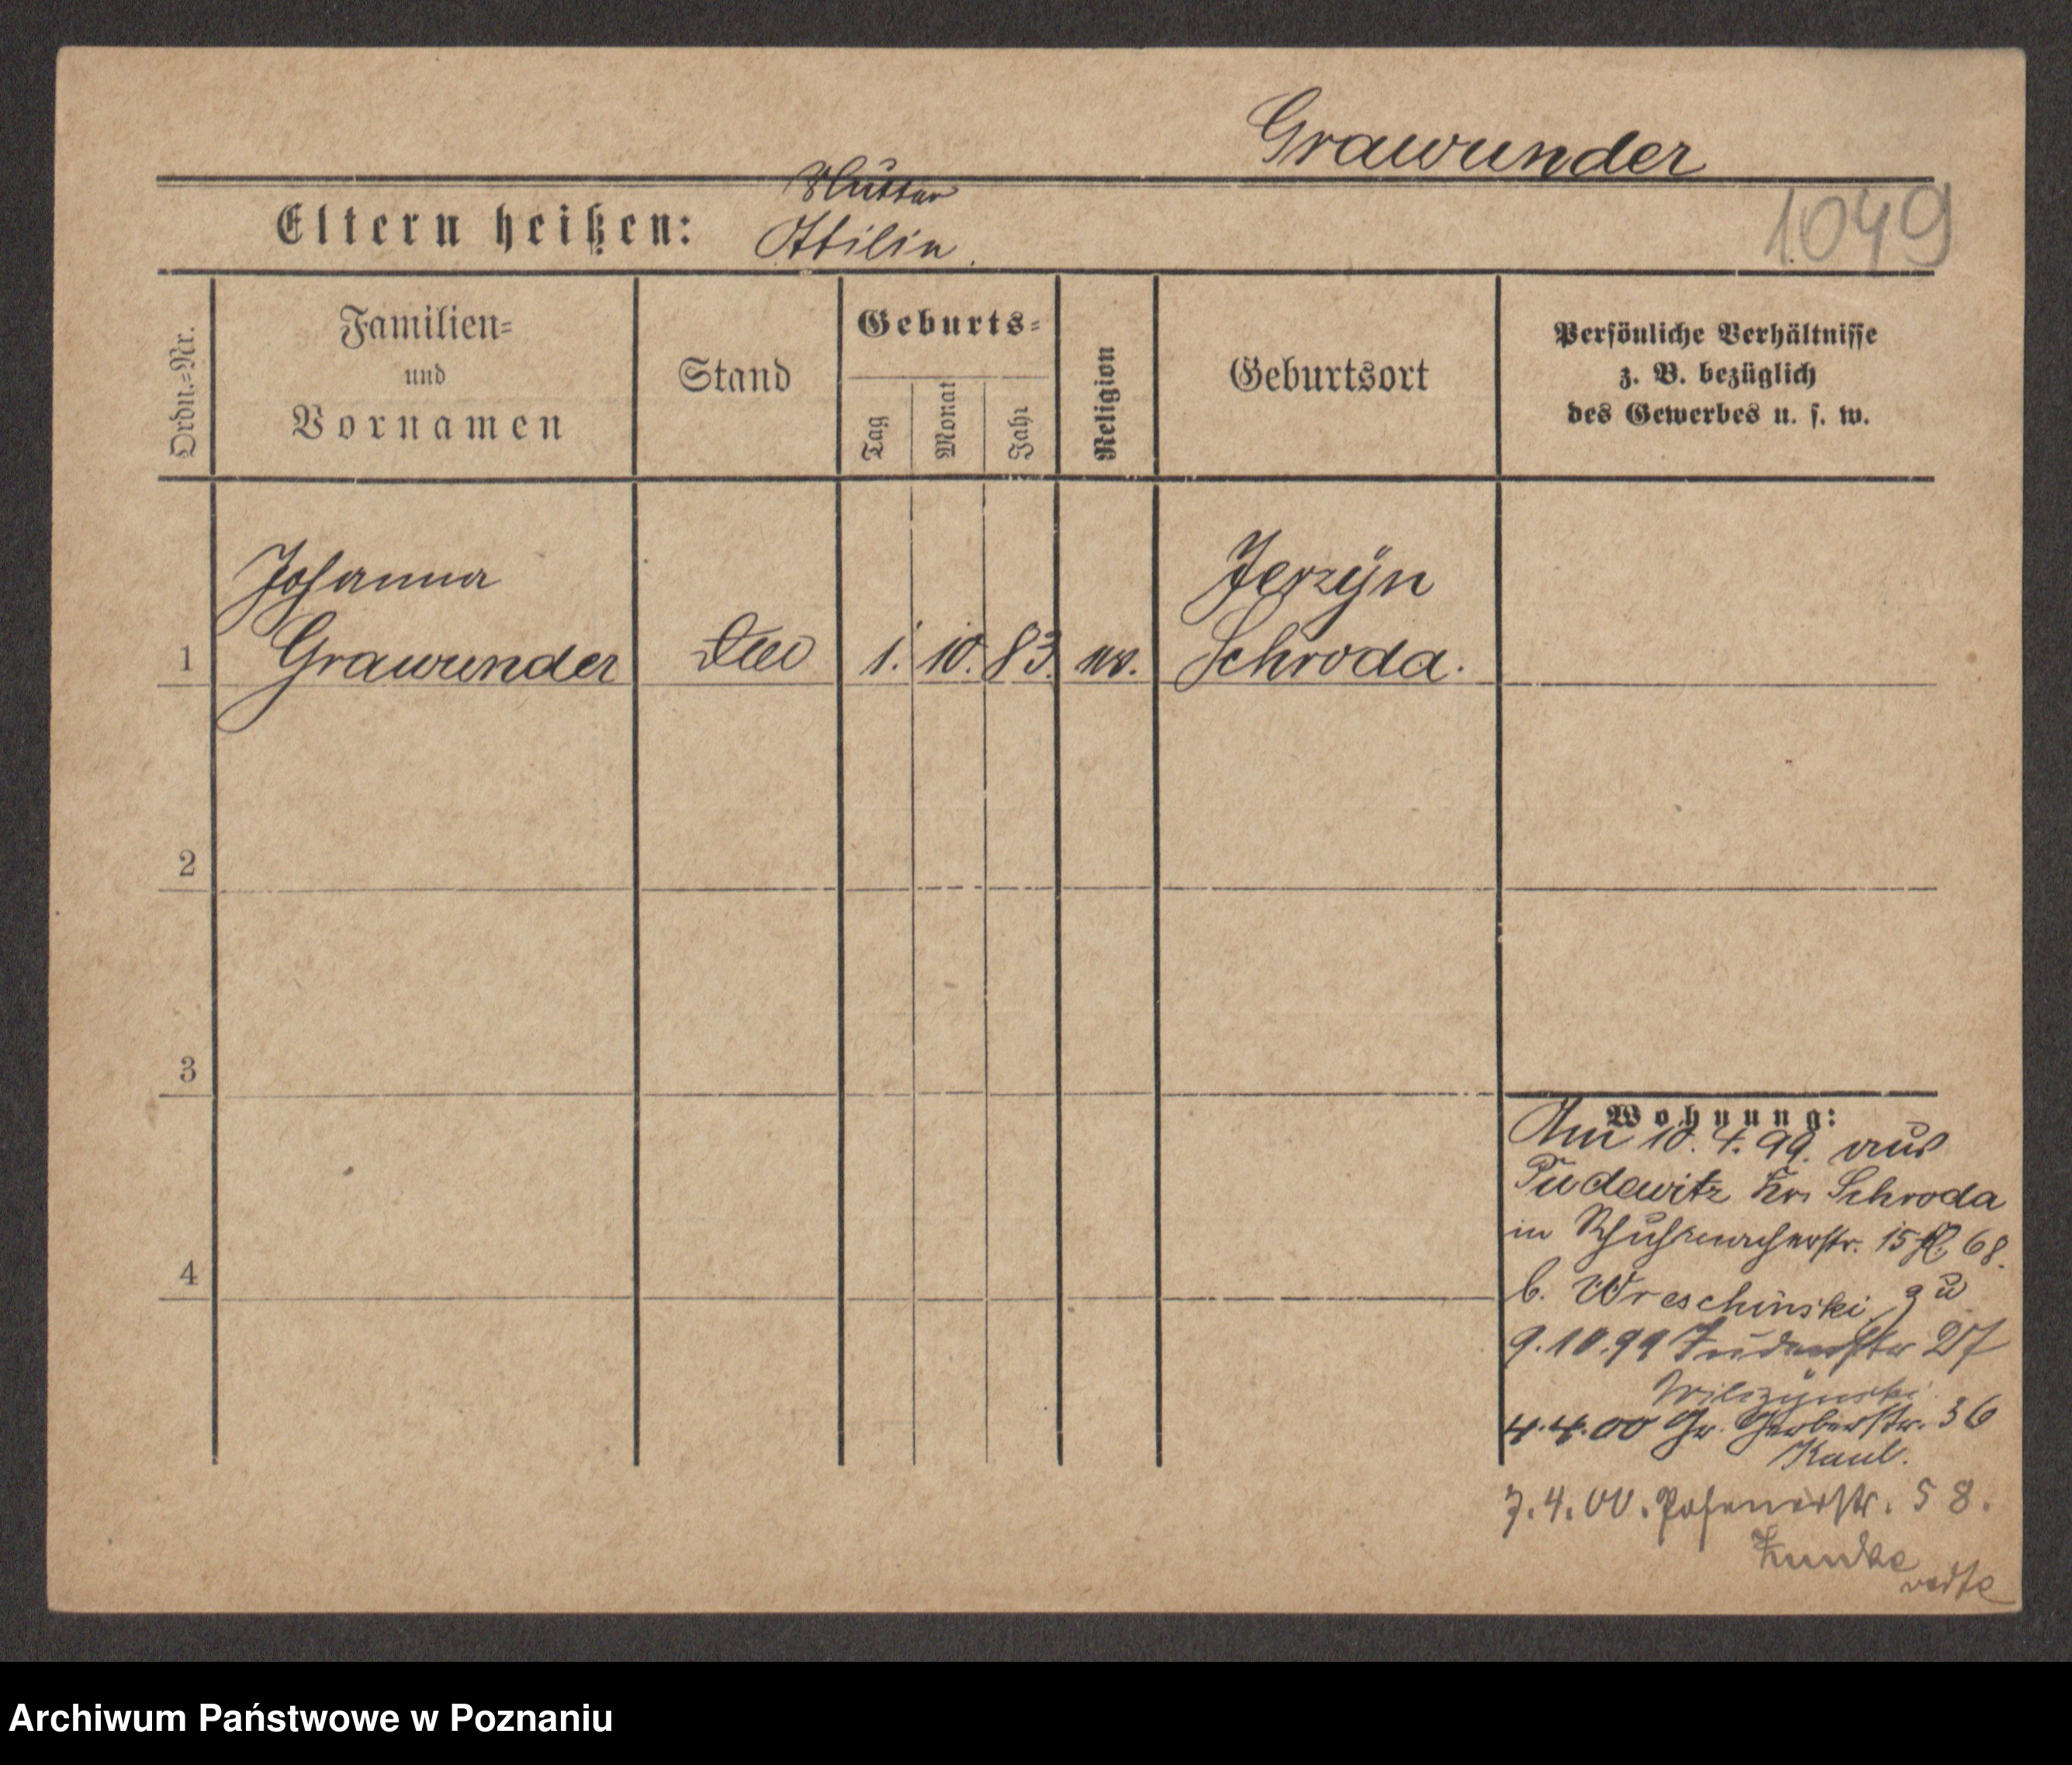 Grawunder
1049
Mutter
Eltern heißen: Ottilie
Ordn.=Nr.
Familien=
und
Vornamen
Stand
Geburts=
Tag
Monat
Jahr
Religion
Geburtsort
Persönliche Verhältnisse
z. B. bezüglich
des Gewerbes u. s. w.
Johanna Jerzÿn
1 Grawunder 1. 10. 83. ev. Schroda.
2
3
4
Wohnung:
Am 10. 4. 99. aus
Pudewitz Kr. Schroda
in Schuhmacherstr. 15 68.
b. Wreschinski zu
9.10.99 Judenstr 27
Wilczynski
4.4.00 Gr. Gerberstr. 36
Kaul.
7.4.00. Posenerstr. 58.